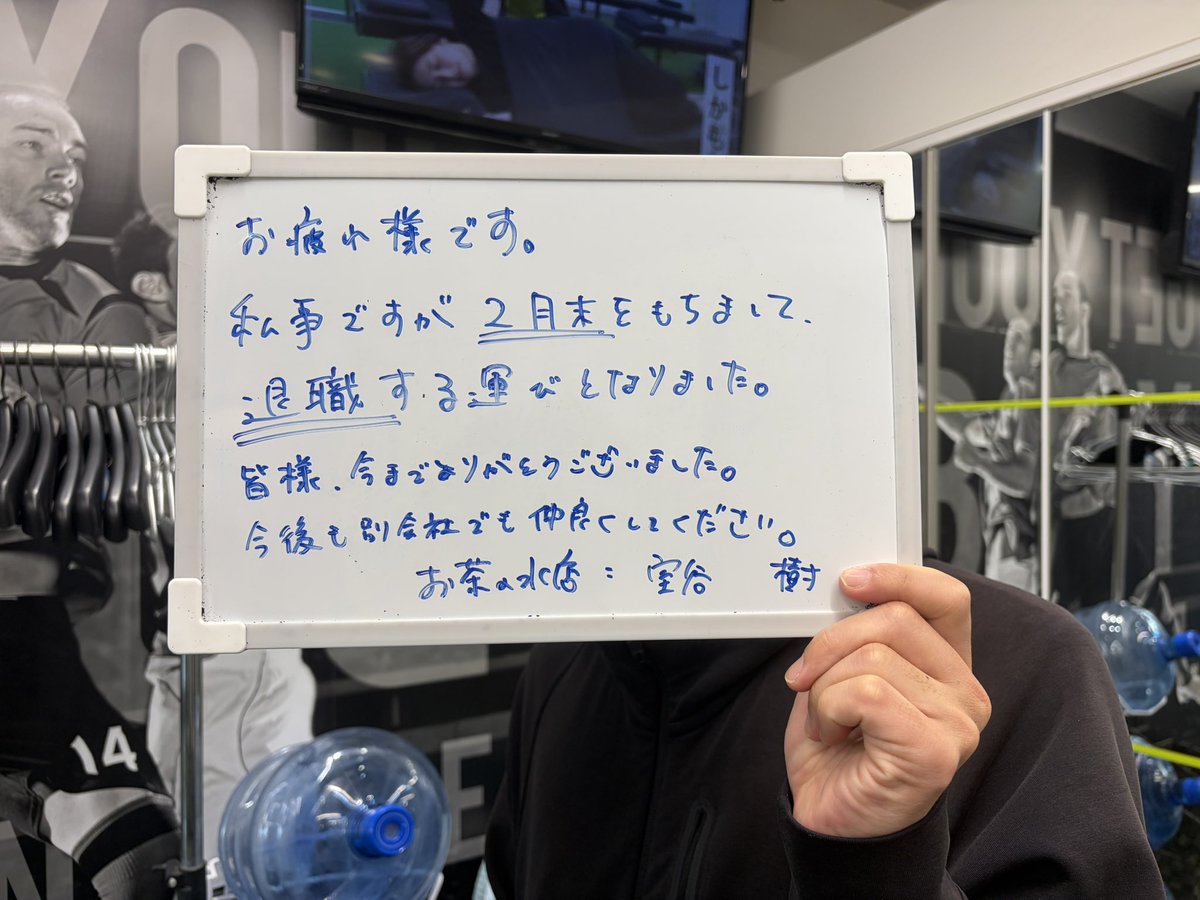 しかも
お疲れ様です。
私事ですが2月末をもちまして、
退職する運びとなりました。
皆様、今までありがとうございました。
今後も別会社でも仲良くしてください。
お茶の水店：室谷 樹
14